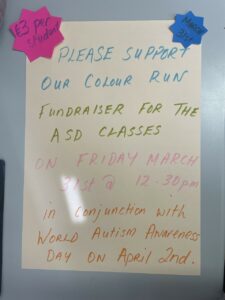 £3 per
student
March
31st
PLEASE SUPPORT
OUR COLOUR RUN
FUNDRAISER FOR THE
ASD CLASSES
ON FRIDAY MARCH
31st @ 12-30pm
in conjunction with
WORLD AUTISM AWARENESS
DAY ON APRIL 2nd.